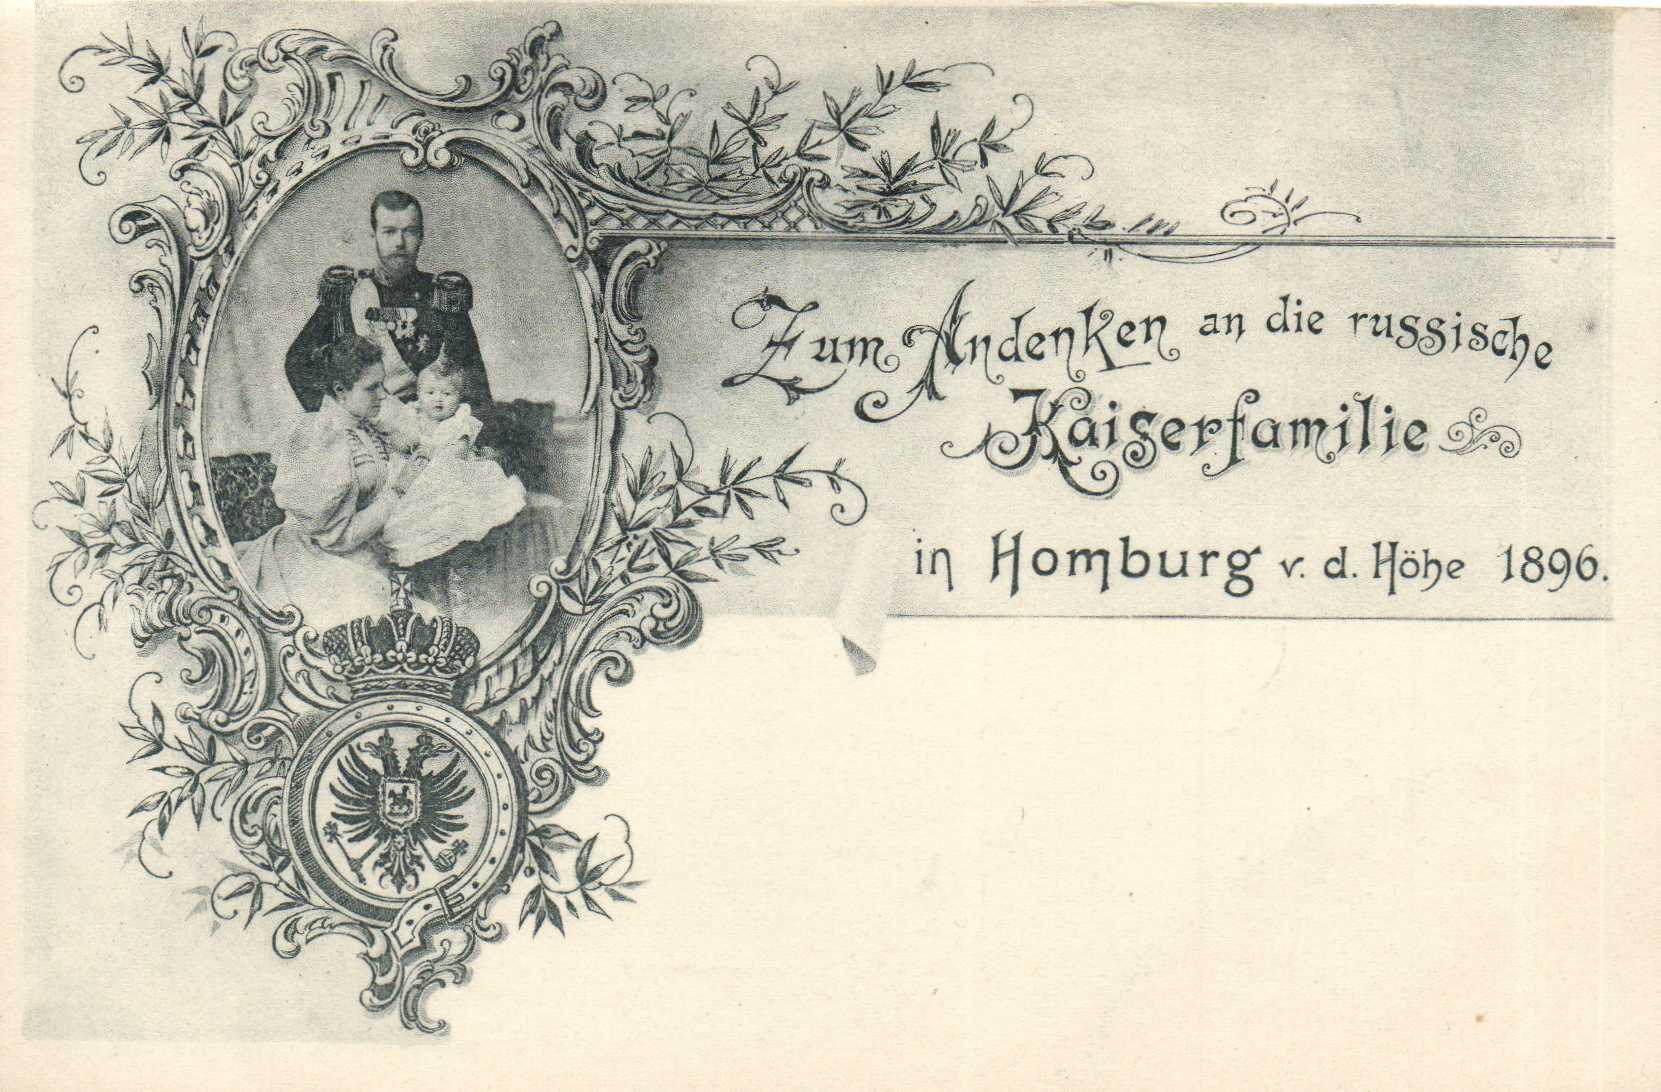 Zum Andenken an die russische
Kaiserfamilie
in Homburg v. d. Höhe 1896.